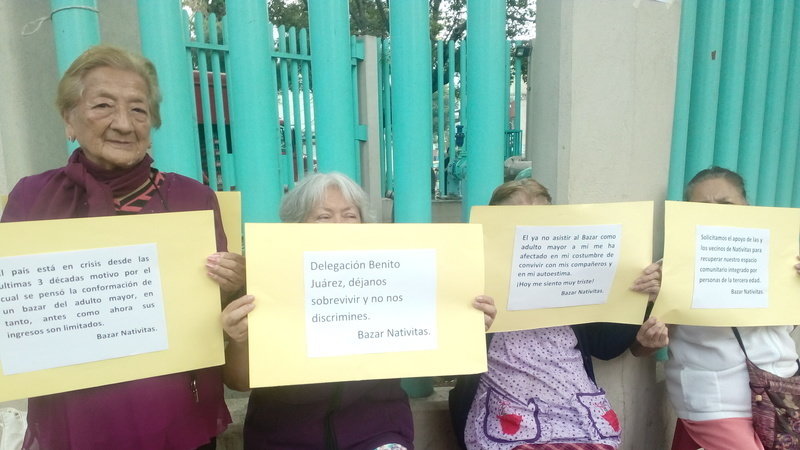 El país está en crisis desde las
últimas 3 décadas motivo por el
cual se pensó la conformación de
un bazar del adulto mayor, en
tanto, antes como ahora sus
ingresos son limitados.
Bazar Nativitas.
Delegación Benito
Juárez, déjanos
sobrevivir y no nos
discrimines.
Bazar Nativitas.
El ya no asistir al Bazar como
adulto mayor a mí me ha
afectado en mi costumbre de
convivir con mis compañeros y
en mi autoestima.
¡Hoy me siento muy triste!
Bazar Nativitas.
Solicitamos el apoyo de las y
los vecinos de Nativitas para
recuperar nuestro espacio
comunitario integrado por
personas de la tercera edad.
Bazar Nativitas.